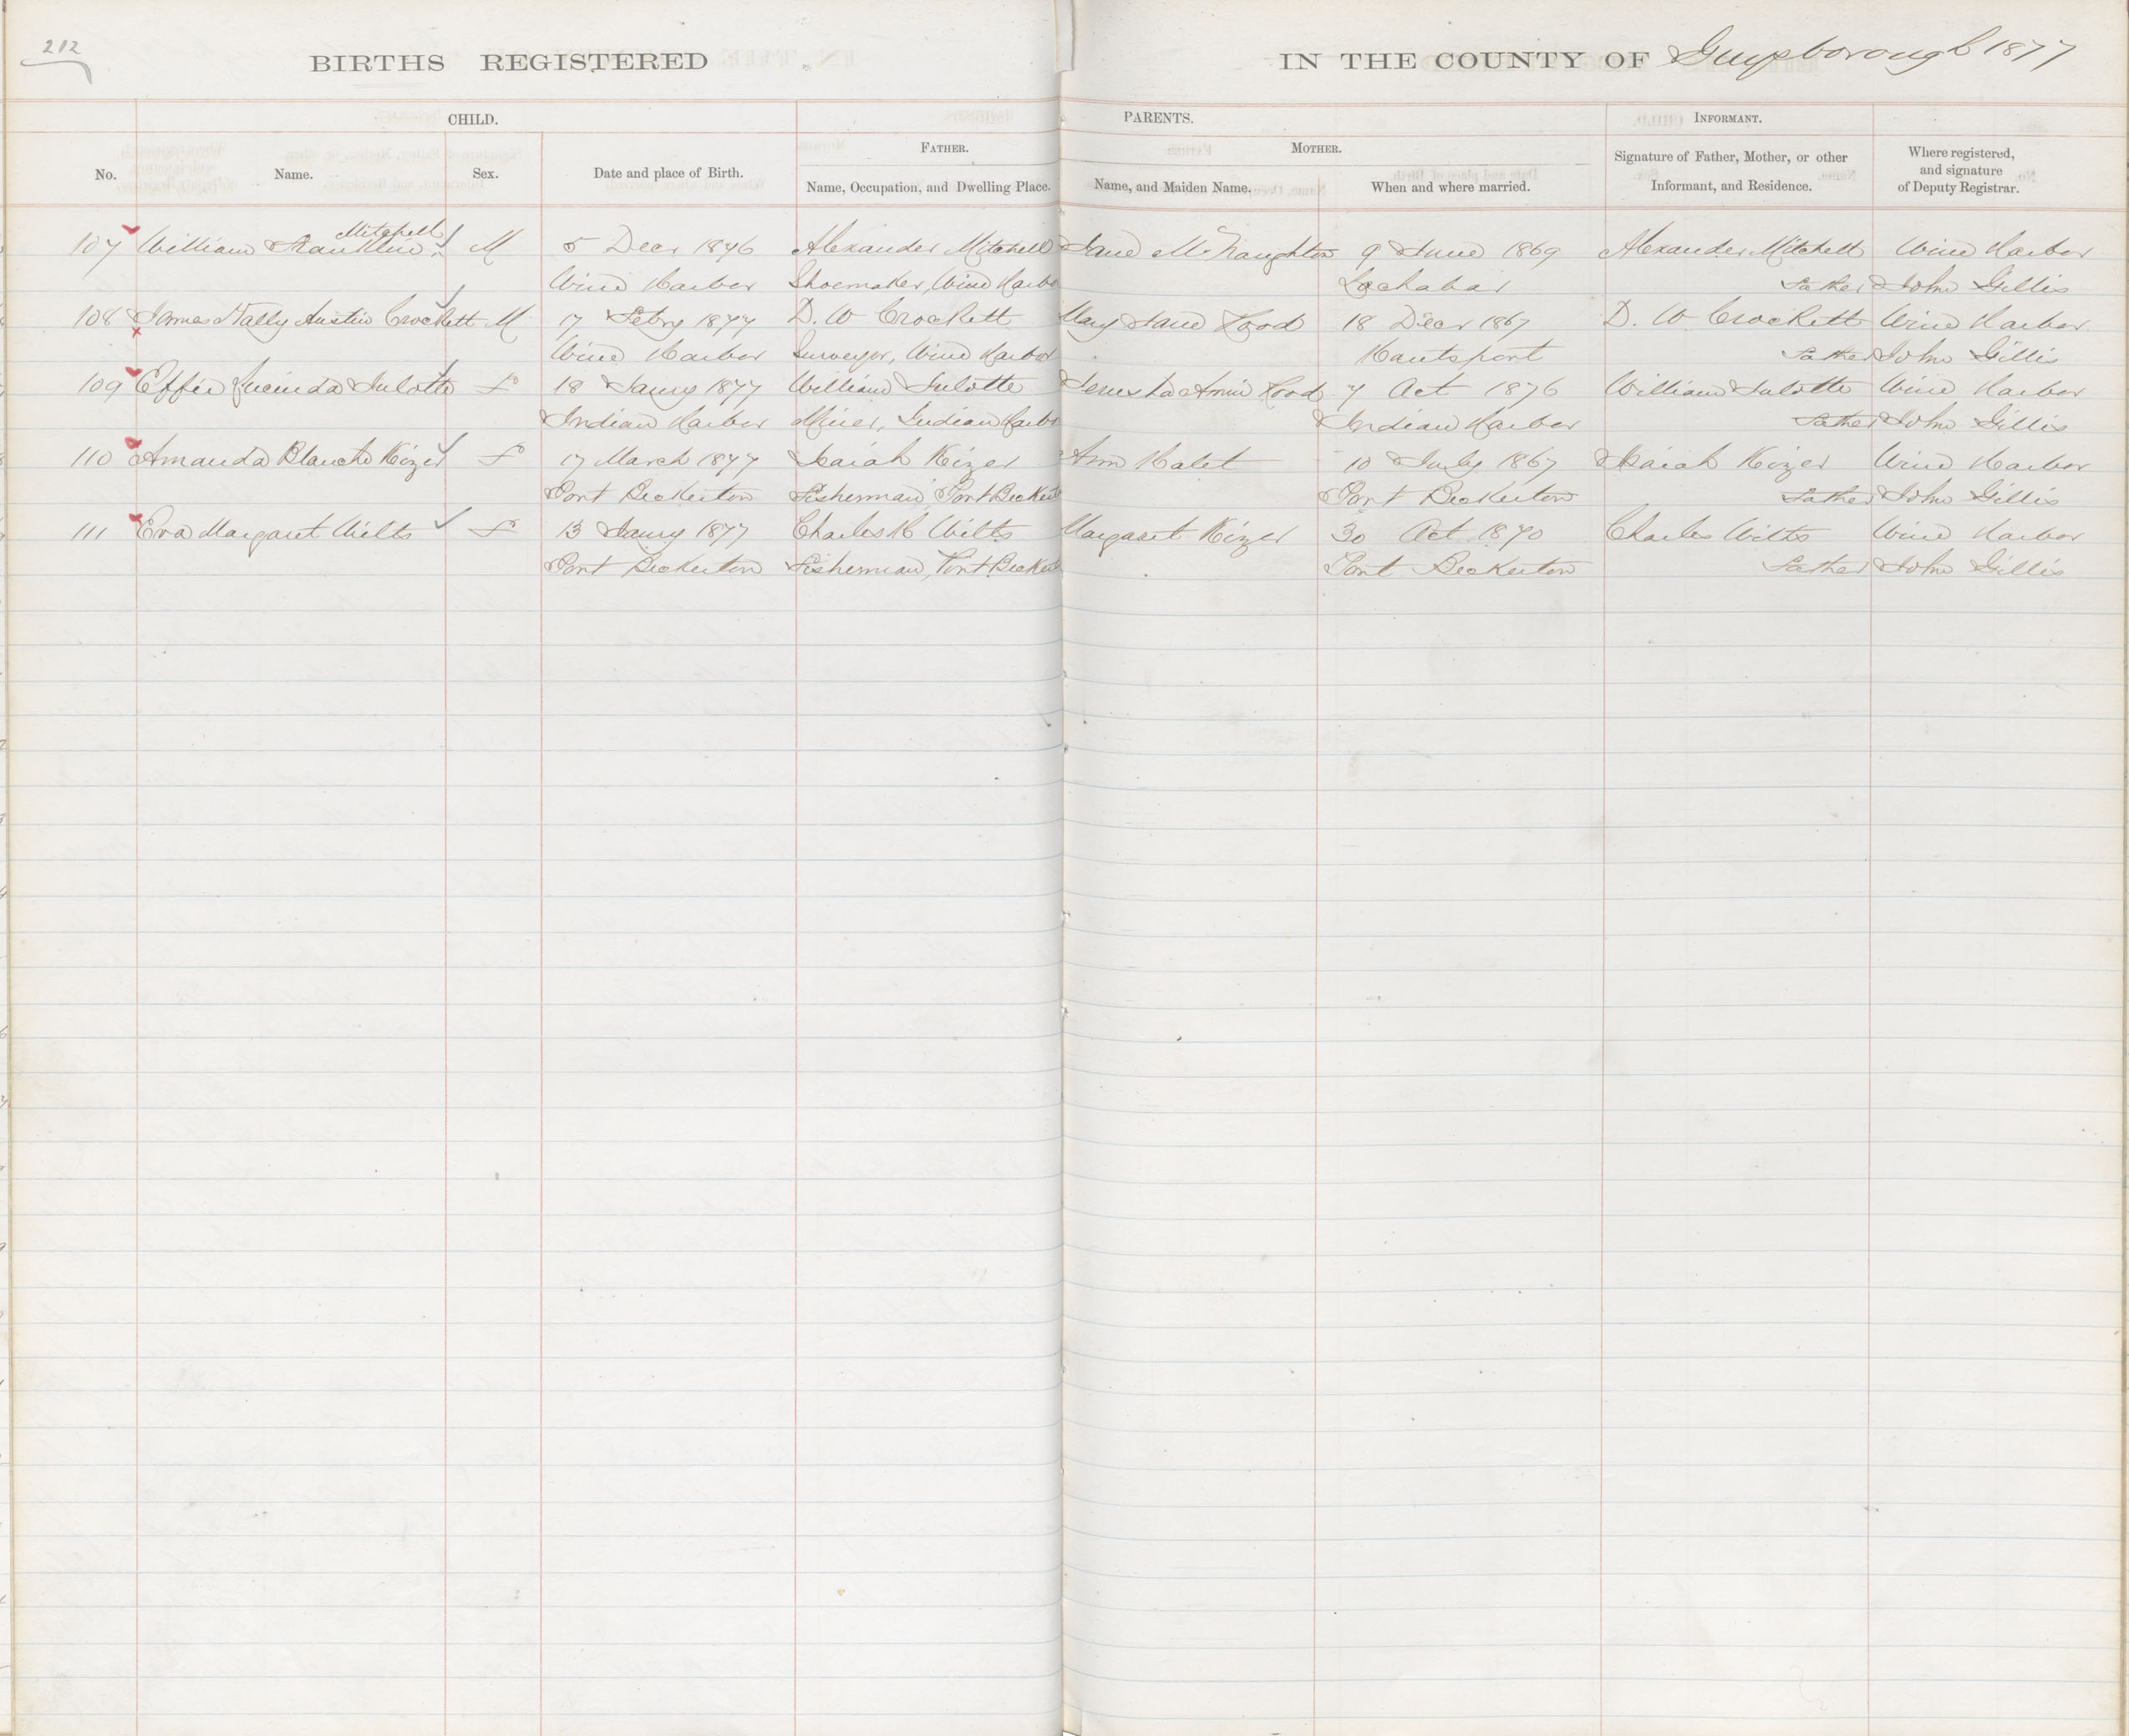 212
BIRTHS REGISTERED IN THE COUNTY OF Guysborough 1877
CHILD. PARENTS. INFORMANT.
FATHER. MOTHER.
No. Name. Sex. Date and place of Birth. Name, Occupation, and Dwelling Place. Name, and Maiden Name. When and where married. Signature of Father, Mother, or other Informant, and Residence. Where registered, and signature of Deputy Registrar.
Mitchell
107 William Franklin M 5 Decr 1876 Alexander Mitchell Jane McNaughton 9 June 1869 Alexander Mitchell Wine Harbor
Wine Harbor Shoemaker, Wine Harbor Lochabar Father John Gillis
108 James Wally Austin Crockett M 17 Feby 1877 D. W Crockett Mary Jane Hood 18 Decr 1867 D. W Crockett Wine Harbor
Wine Harbor Surveyor, Wine Harbor Hantsport Father John Gillis
109 Effie Lucinda F 18 Jany 1877 William Annie Hood 7 Oct 1876 William Wine Harbor
Indian Harbor Miner, Indian Harbor Indian Harbor Father John Gillis
110 Amanda Blanche Kizer F 17 March 1877 Isaiah Kizer Ann 10 July 1867 Isaiah Kizer Wine Harbor
Port Beckerton Fisherman, Port Beckert Port Beckerton Father John Gillis
111 Eva Margaret Wilts F 13 Jany 1877 Charles H Wilts Margaret Kizer 30 Oct 1870 Charles Wilts Wine Harbor
Port Beckerton Fisherman, Port Beckert Port Beckerton Father John Gillis